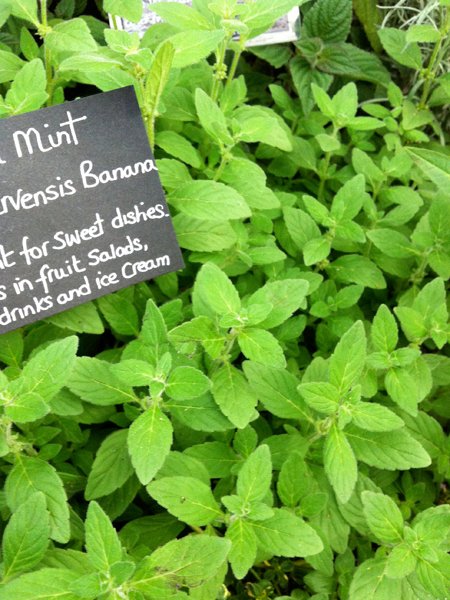 Mint
Banana
for Sweet dishes.
in fruit Salads,
drinks and ice Cream